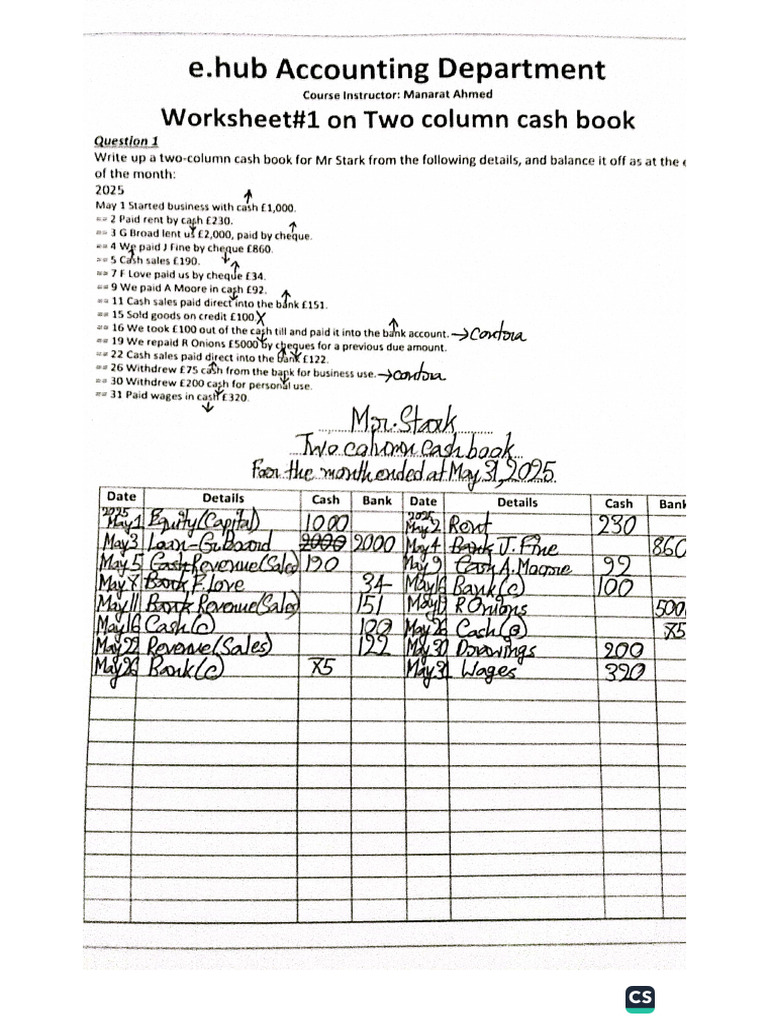 e.hub Accounting Department
Course Instructor: Manarat Ahmed
Worksheet#1 on Two column cash book
Question 1
Write up a two-column cash book for Mr Stark from the following details, and balance it off as at the e
of the month:
2025
May 1 Started business with cash £1,000.
== 2 Paid rent by cash £230.
== 3 G Broad lent us £2,000, paid by cheque.
== 4 We paid J Fine by cheque £860.
== 5 Cash sales £190.
== 7 F Love paid us by cheque £34.
== 9 We paid A Moore in cash £92.
== 11 Cash sales paid direct into the bank £151.
== 15 Sold goods on credit £100. X
== 16 We took £100 out of the cash till and paid it into the bank account. → Contra
== 19 We repaid R Onions £5000 by cheques for a previous due amount.
== 22 Cash sales paid direct into the bank £122.
== 26 Withdrew £75 cash from the bank for business use. → contra
== 30 Withdrew £200 cash for personal use.
== 31 Paid wages in cash £320.
Mr. Stark
Two column cash book
For the month ended at May 31, 2025.
Date Details Cash Bank Date Details Cash Bank
2025 May 1 Equity (Capital) 1000 2025 May 2 Rent 230
May 3 Loan- 2000 2000 May 4 Bank J. Fine 860
May 5 Cash Revenue (Sales) 190 May 9 Cash A. Moore 92
May 7 Bank F. Love 34 May 16 Bank (c) 100
May 11 Bank Revenue (Sales) 151 May 19 R Onions 500
May 16 Cash (c) 100 May 26 Cash (c) 75
May 22 Revenue (Sales) 122 May 30 Drawings 200
May 26 Bank (c) 75 May 31 Wages 320
CS